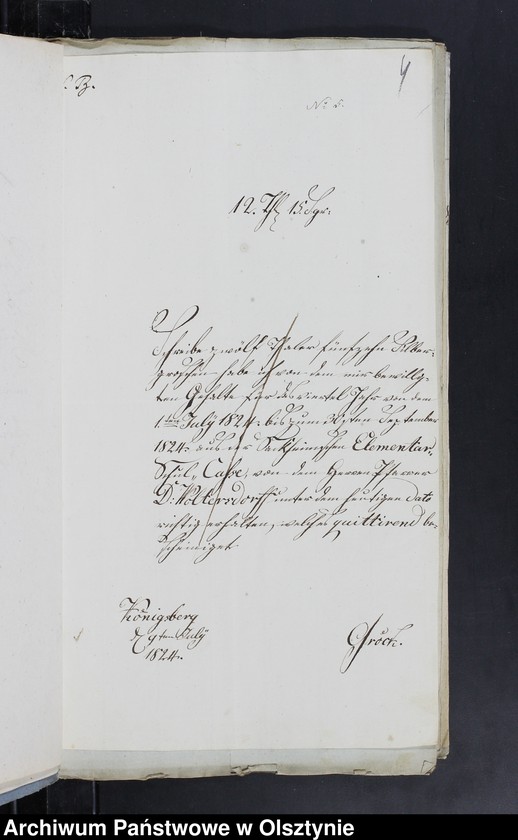 4
B.
No 5.
12. Thl 15 Sgr:
Schreibe zwölf Thaler fünfzehn Silber-
groschen habe ich von dem mir bewillig-
ten Gehalte für das viertel Jahr von dem
1ten July 1824. bis zum 30ten September
1824. aus der Sackheimschen Elementar-
Schul Casse, von dem Herrn Pfarrer
Dr. Woltersdorff unter dem heutigen dato
richtig erhalten, welches quittirend be-
scheiniget
Königsberg
d 9ten July
1824.
Gröck.
Archiwum Państwowe w Olsztynie